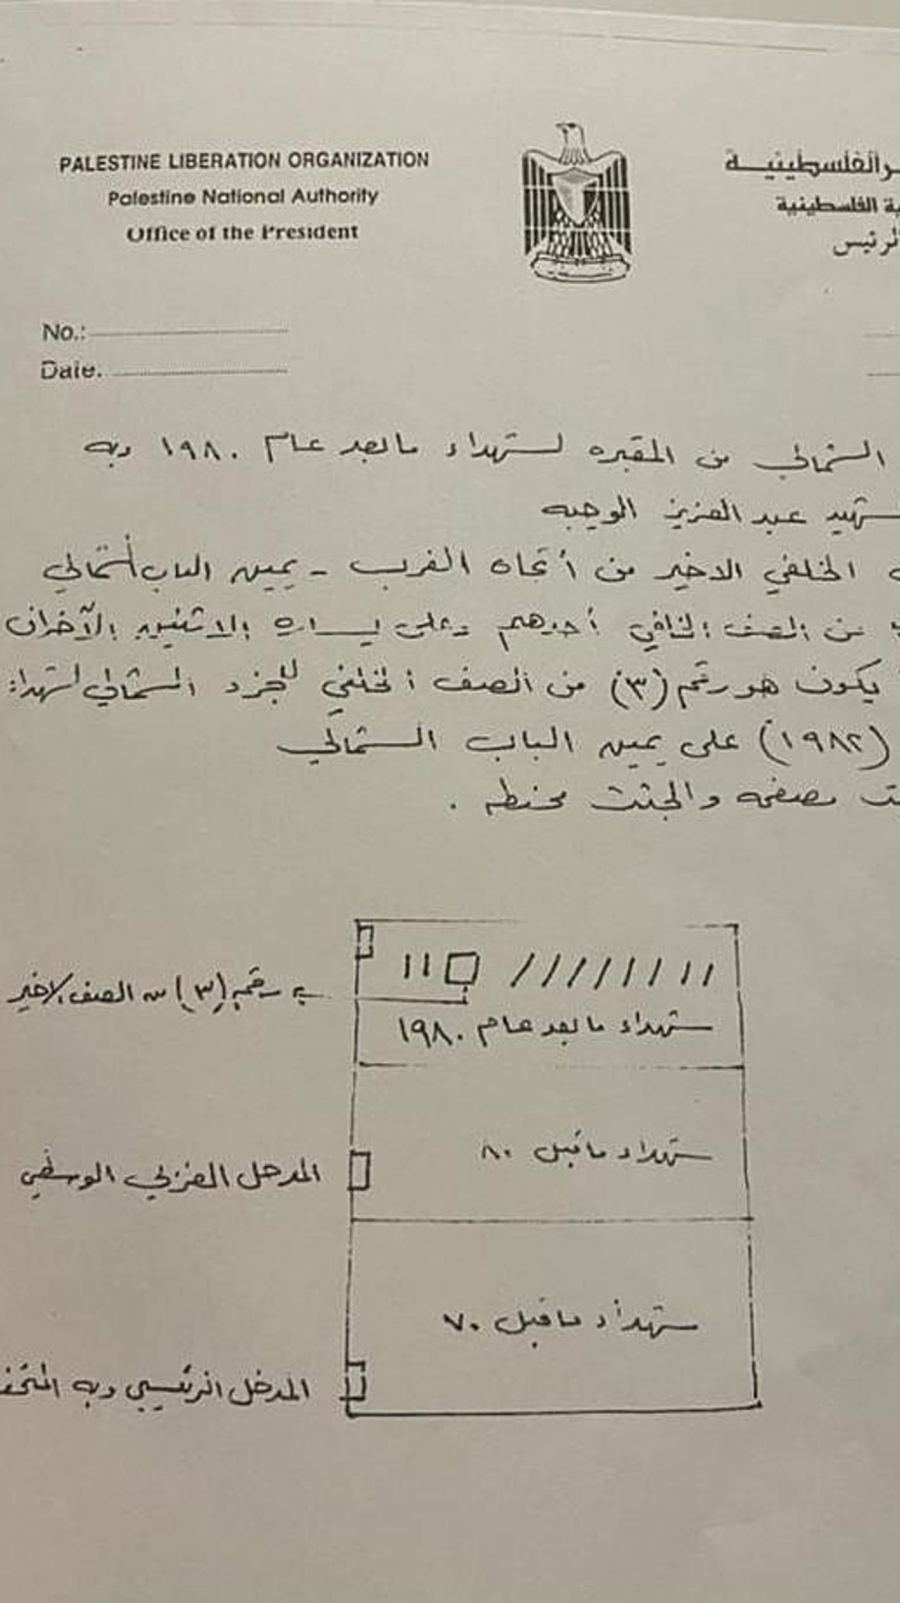 PALESTINE LIBERATION ORGANIZATION
Palestine National Authority
Office of the President
الفلسطينية
الفلسطينية
الرئيس
No.:
Date.
الشمالي من المقبره لشهداء ما بعد عام ١٩٨٠ وبه
شهيد عبد العزيز الوجيه
الخلفي الاخير من أتجاه الغرب - يمين الباب الشمالي
من الصف الخلفي أحدهم وعلى يساره الاثنين الآخران
يكون هو رقم (٣) من الصف الخلفي للجزء الشمالي لشهداء
(١٩٨٢) على يمين الباب الشمالي
مصفحه والجثث محنطه .
رقم (٣) من الصف الاخير
شهداء ما بعد عام ١٩٨٠
شهداء ما قبل ٨٠
المدخل الغربي الوسطي
شهداء ما قبل ٧٠
المدخل الرئيسي وبه